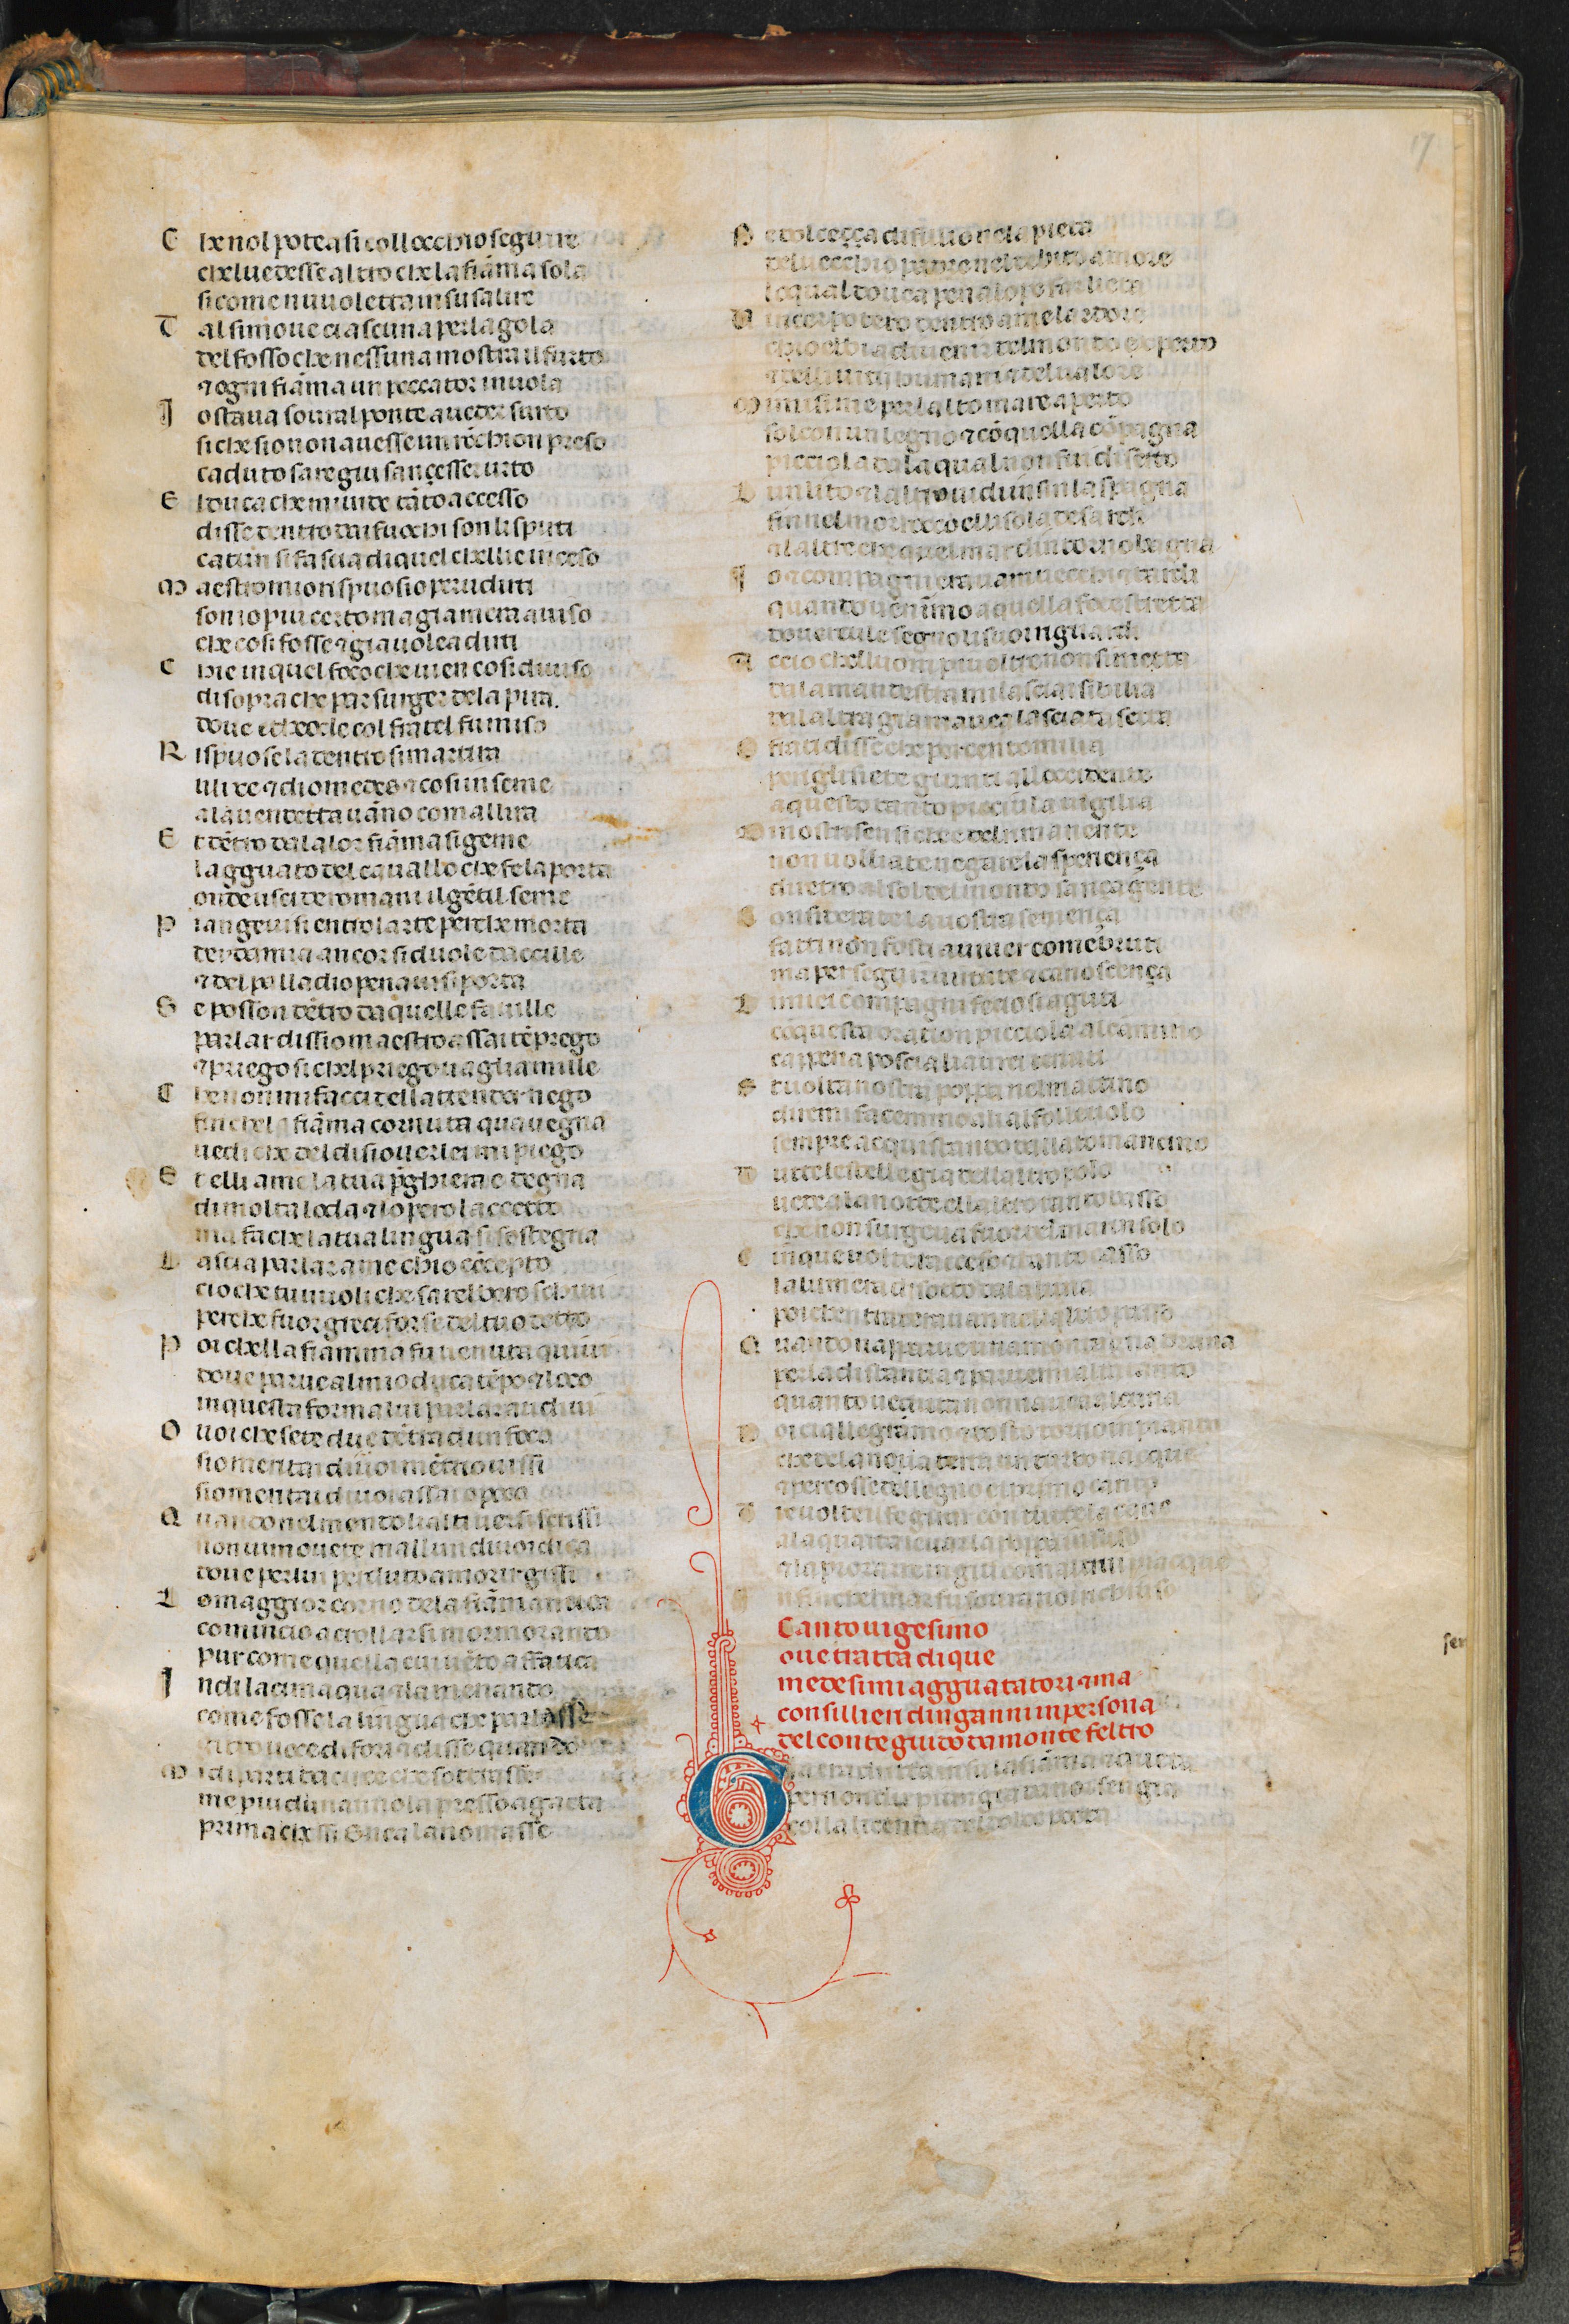 17
C he nol potea si coll occhio seguire
che luedesse altro che la fiāma sola
sicome nuuoletta in su salire
T al si moue ciascuna per la gola
del fosso che nessuna mostra il furto
⁊ ogni fiāma un peccator inuola
I o staua soural ponte aueder surto
si che sio non auesse un rōchion preso
caduto saregiu sançesser urto
E l duca che mi uide tāto acceso
disse dentro dai fuochi son li spirti
catun si fascia di quel chelli e inceso
M aestro mio rispuosio per udirti
son io piu certo ma gia mera auiso
che cosi fosse ⁊ gia uolea dirti
C hie in quel foco che uien cosi diuiso
di sopra che par surger dela pira.
doue etheocle col fratel fu miso
R ispuose la dentro si martira
ulixe ⁊ diomedes ⁊ cosi inseme
ala uendetta uāno com allira
E t dētro dala lor fiāma si geme
lagguato del cauallo che fe la porta
onde usci deromani il gētil seme
P iangeuisi entro larte perche morta
deydamia ancor si duole daccille
⁊ del palladio pena ui si porta
S e posson dētro da quelle fauille
parlar dissio maestro assai tē prego
⁊ priego si chel priego uaglia mille
C he non mi facci dell attender nego
fin che la fiāma cornuta qua uegna
uedi che del disio uer lei mi piego
E t elli ame la tua pghiera e degna
di molta loda ⁊ io pero laccetto
ma fa che la tua lingua si sostegna
L ascia parlar a me chio cōcepto
cio che tu uuoli che sarebbero schiui
perche fuor greci forse del tuo detto
P oi chella fiamma fu uenuta quiui
doue parue al mio duca tēpo ⁊ loco
in questa forma lui parlar audiui
O uoi che sete due dētro ad un foco
sio meritai di uoi mētro uissi
sio meritai di uoi assai o poco
Q uando nel mondo li alti uersi scrissi
non ui mouete ma llun di uoi dica
doue per lui perduto a morir gissi
L o maggior corno dela fiāma antica
comincio a crollarsi mormorando
pur come quella cui uēto affatica
I ndi la cima qua ⁊ la menando
come fosse la lingua che parlasse
gitto uoce di fori ⁊ disse quando
M i diparti da circe che sottrasse
me piu dun anno la presso a gaeta
prima che ssi enea la nomasse
N e dolceçça di fillio ne la pieta
del uecchio padre nel debito amore
lo qual douea penalope far lieta
V incer potero dentro a me lardore
chio ebbi a diuenir del mondo experto
⁊ delli uitii humani ⁊ del ualore
M a misi me per lalto mare aperto
sol con un legno ⁊ cō quella cōpagna
picciola dala qual non fui diserto
L un lito ⁊ laltro uidi in sin la spagna
fin nel morrocco ell isola de sardi
⁊ laltre che quel mare intorno bagna
I o ⁊ compagni erauam uecchi ⁊ tardi
quando uenimo a quella foce stretta
douercule segno li suoi riguardi.
A ccio chelluom piu oltre non si metta
dala man destra mi lasciai sibilia
dal altra gia mauea lasciata setta
O frati disse che per cento milia
perigli siete giunti all occidente
a questa tanto picciola uigilia
D i nostri sensi che del rimanente
non uolliate negar la sperienza
diretro al sol del mondo sança gente
C onsiderate la uostra semença
fatti non fosti a uiuer come bruti
ma per seguir uirtute ⁊ canoscença
L i miei compagni fecio si aguti
cō questa oration picciola al camino
cappena poscia li aurei tenuti
E t uolta nostra poppa nel mattino
de remi facemmo ali al folle uolo
sempre acquistando dallato mancino
T utte le stelle gia dell altro polo
uedea la notte ell altro tanto basso
che non surgeua fuor del marin solo
C inque uolte racceso ⁊ tante casso
lo lume era di sotto dala luna
poi chentrati erauam nell alto passo
Q uando napparue una montagna bruna
per la distantia ⁊ paruemi alta tanto
quanto ueduta non nauea alcuna
N oi ci allegrāmo ⁊ tosto torno in pianto
che dela noua terra un turbo nacque
⁊ percosse del legno il primo canto
T re uolte il fe girar con tutte lacque
ala quarta leuar la poppa in suso
⁊ la prora ire in giu com altrui piacque
I nfin chel mar fu soura noi richiuso
Canto uigesimo
oue tratta di que
medesimi agguatatori ⁊ ma
consillieri dinganni in persona
del conte guido da monte feltro
G ia era dritta in su la fiāma ⁊ queta
per non dir piu ⁊ gia da noi sen gia
colla licentia del dolce poeta
ser